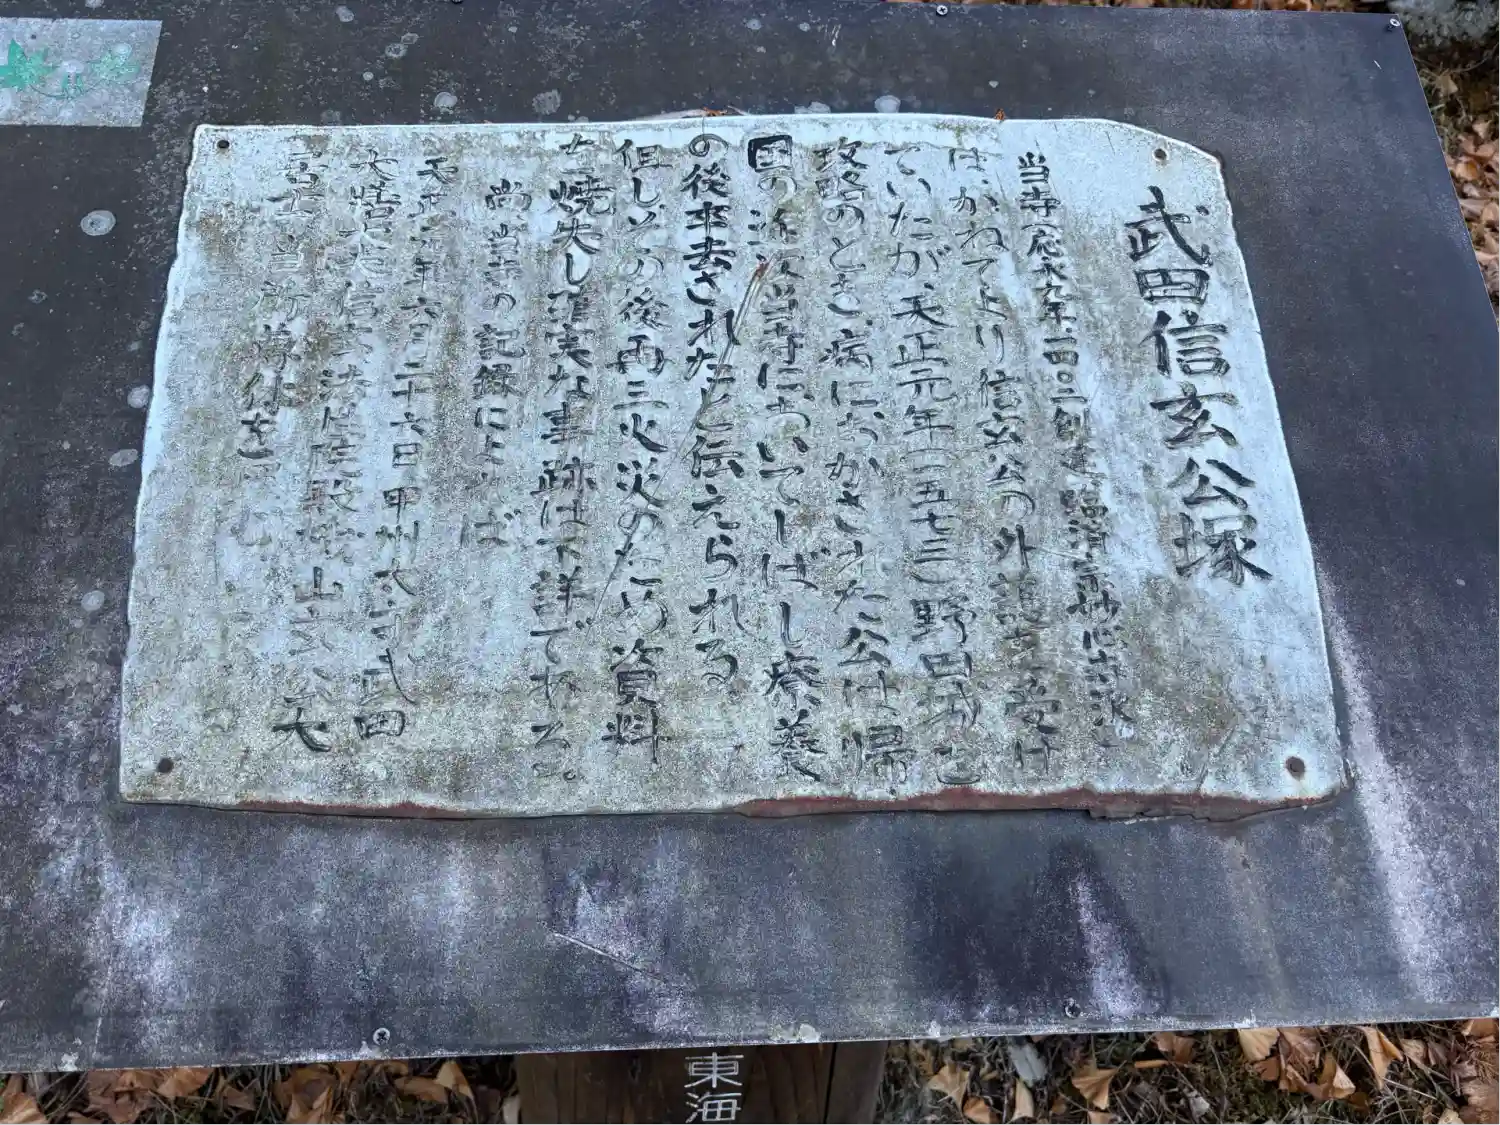 武田信玄公塚
当寺(応永九年一四〇二創建臨済宗妙心寺派)
は、かねてより信玄公の外護を受け
ていたが、天正元年(一五七三)野田城を
攻略のとき、病におかされた公は帰
国の途次当寺においてしばし療養
の後卒去されたと伝えられる
但しその後再三火災のため資料
を焼失し確実な事跡は不詳である。
尚、当寺の記録によれば
天正元年六月二十六日 甲州太守武田
大僧正信玄法性院殿機山玄公大
居士 当所 を
東海